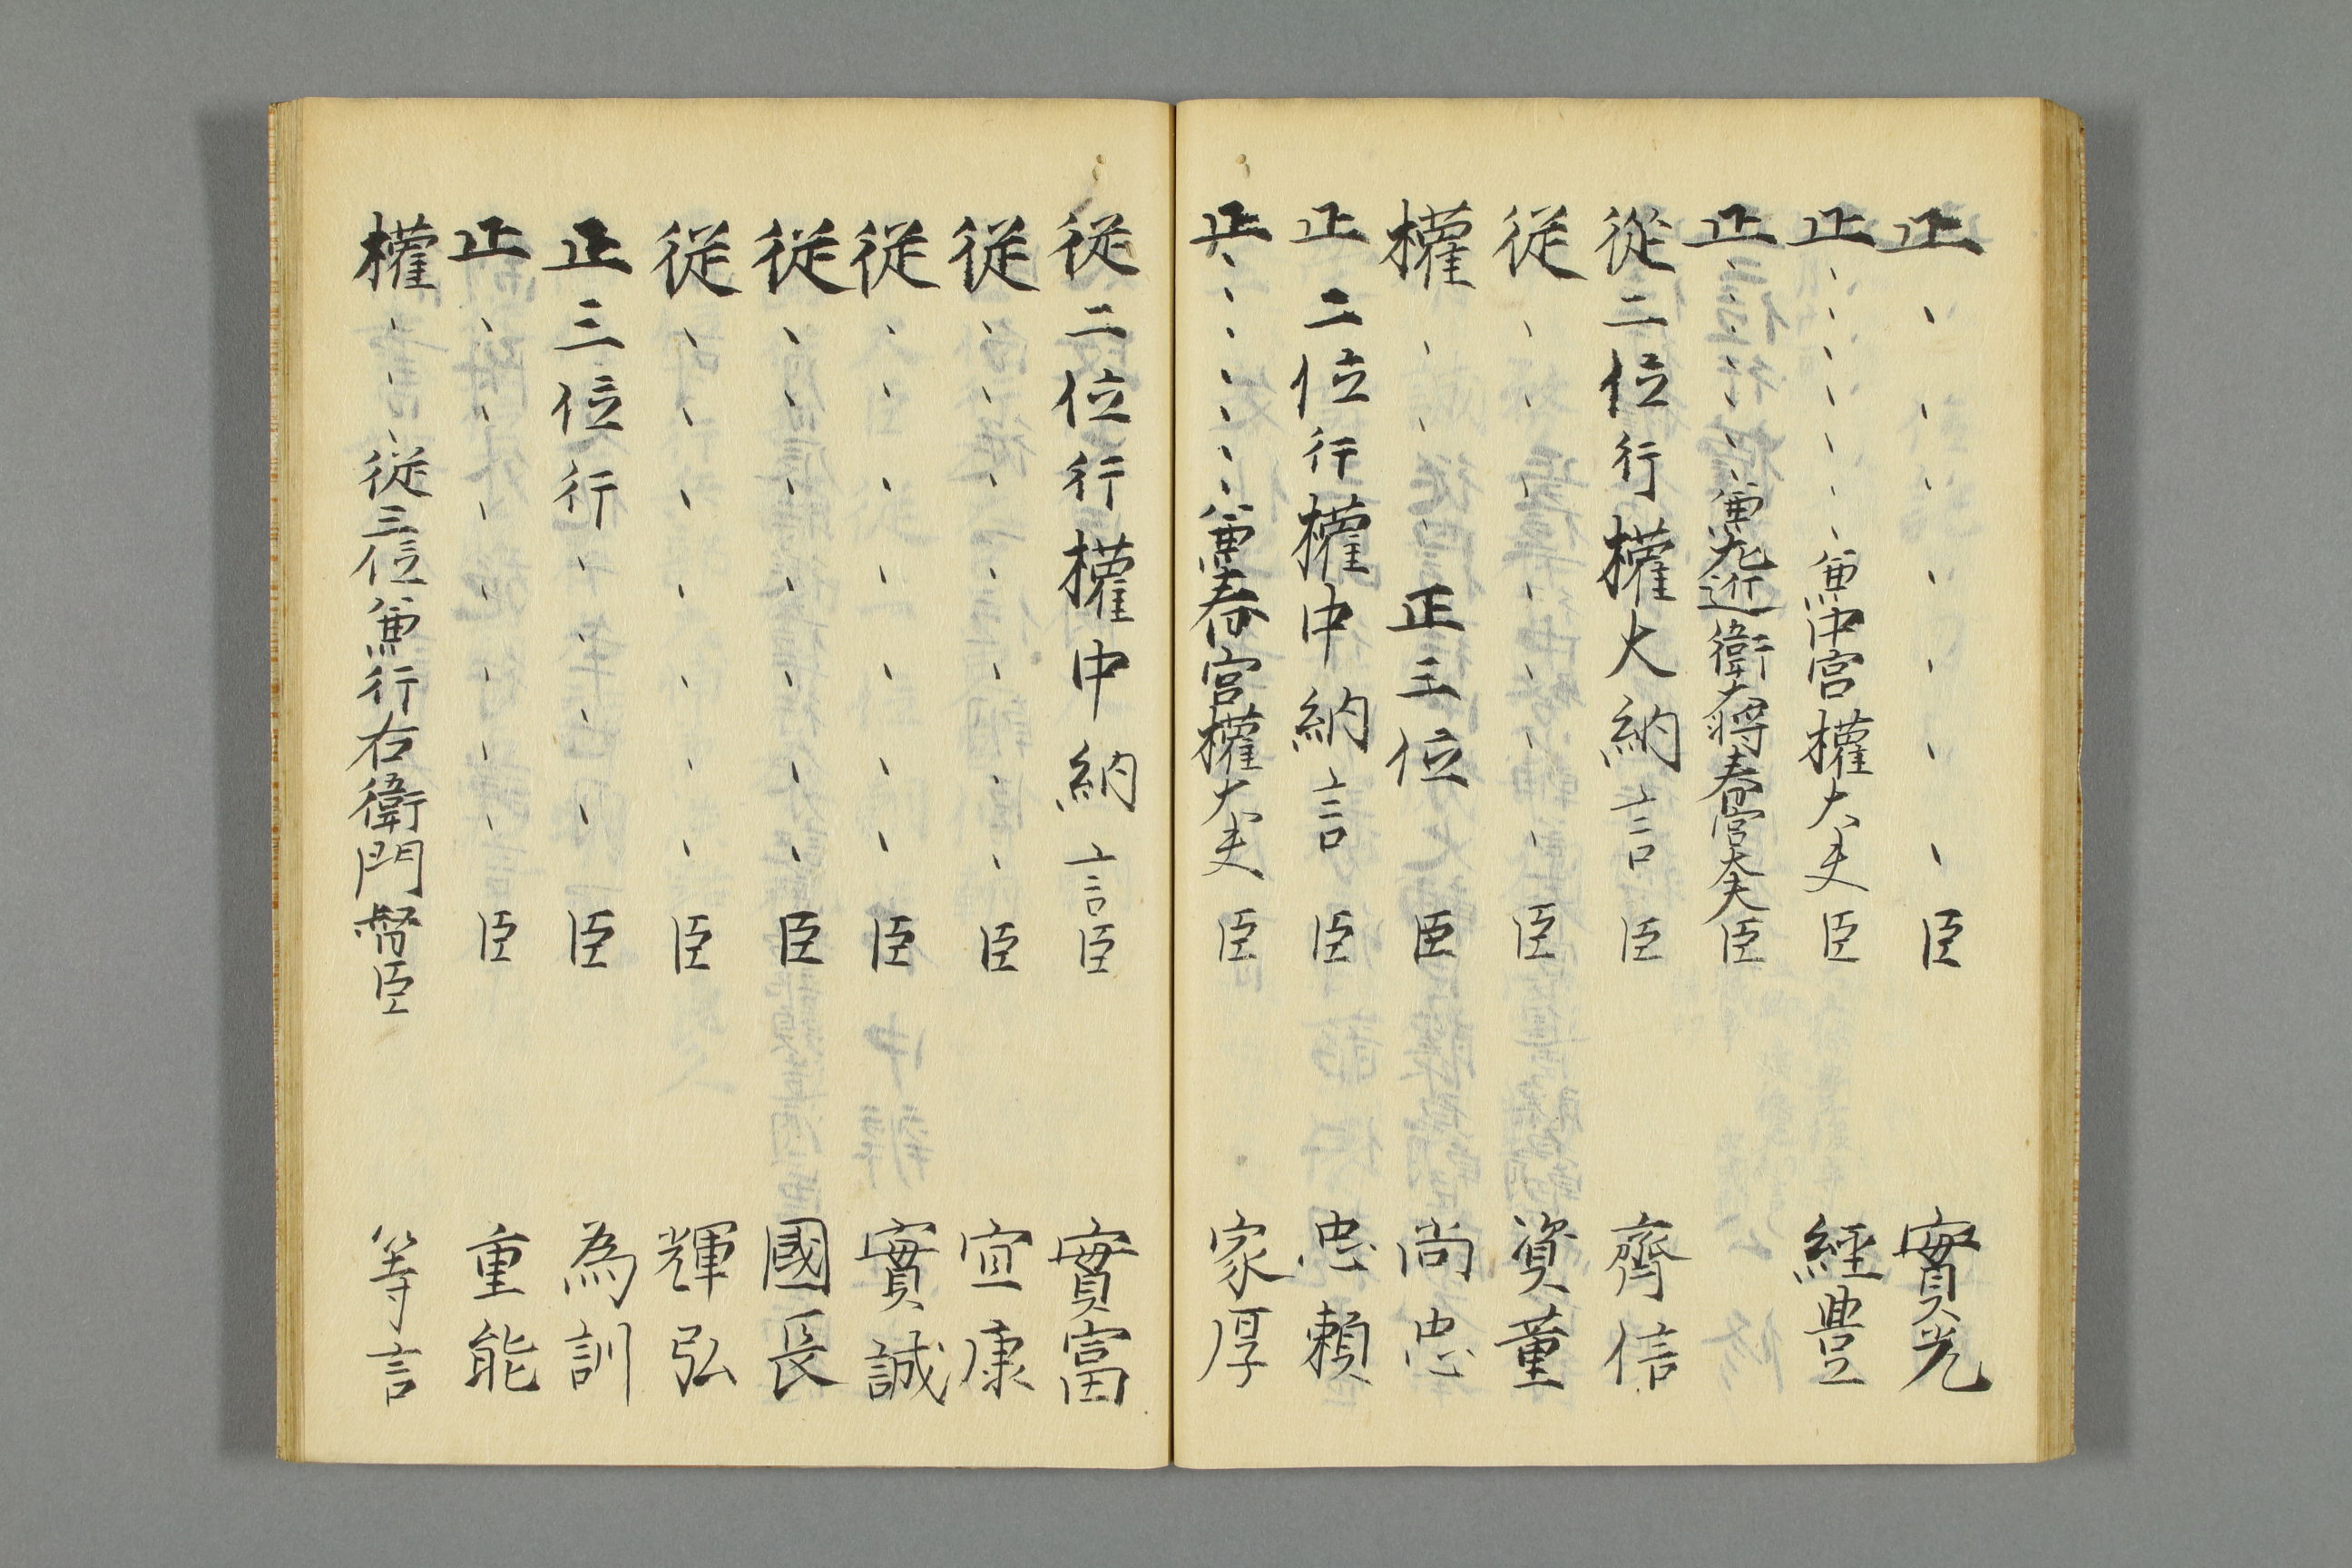 正、、、、、、、臣 實光
正、、、、、、、兼中宮權大夫臣 經豊
正、、、、、、、兼左近衛大将春宮大夫臣
従二位行權大納言臣 齊信
従、、、、、、、臣 資董
權、、、正三位臣 尚忠
正二位行權中納言臣 忠頼
正、、、、、、、兼春宮權大夫臣 家厚
従二位行權中納言臣 實富
従、、、、、、、臣 宜康
従、、、、、、、臣 實誠
従、、、、、、、臣 國長
従、、、、、、、臣 輝弘
正三位行、、、、臣 為訓
正、、、、、、、臣 重能
權、、、従三位兼行右衛門督臣 等言